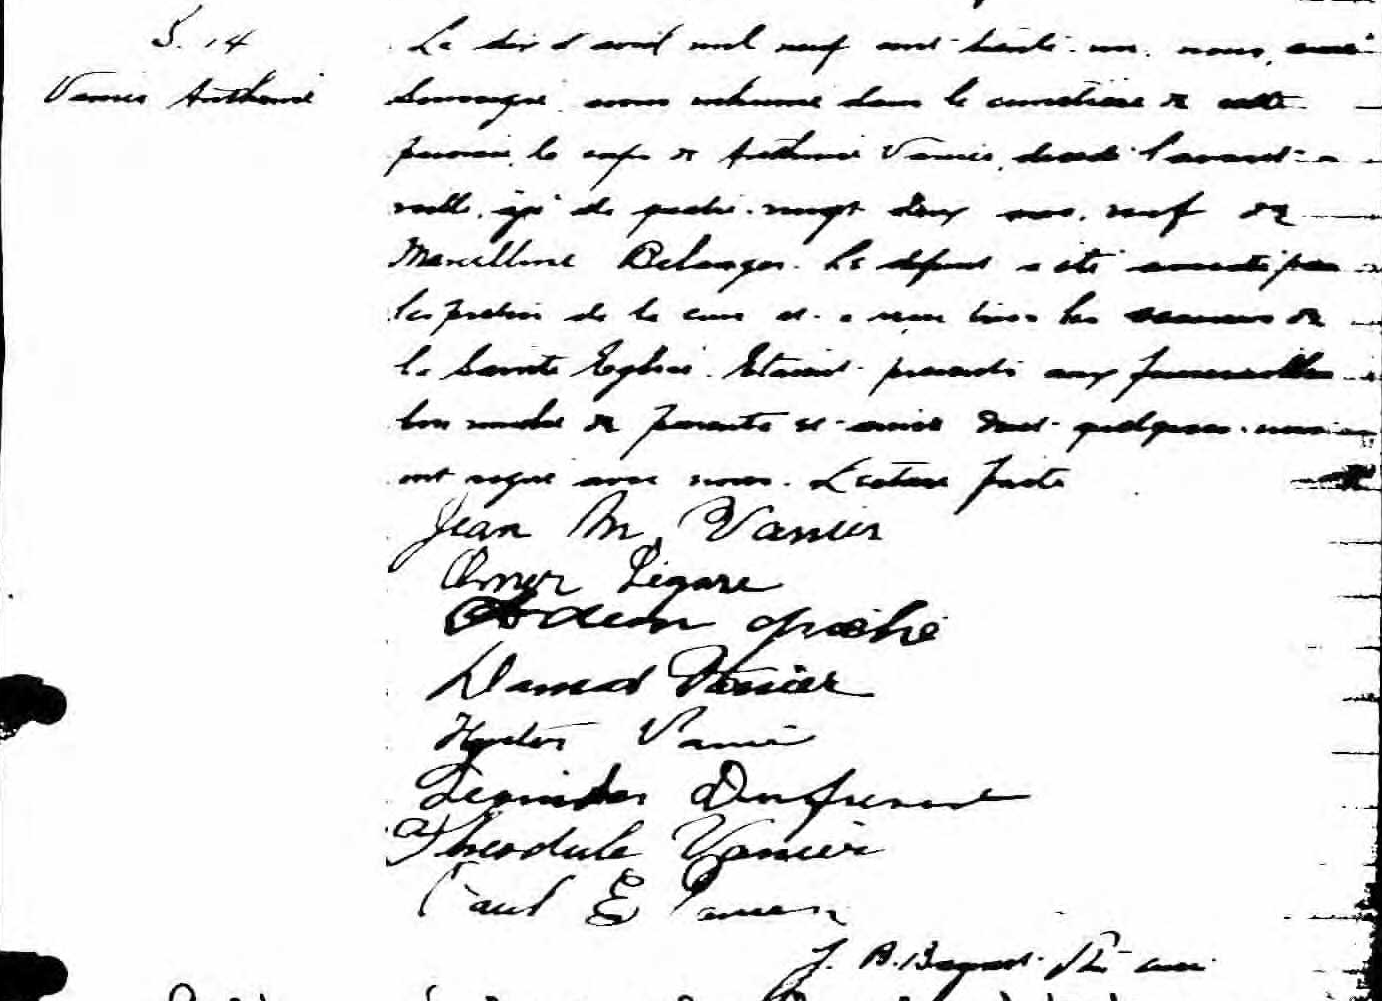 S. 14
Vanier Anthime
Le dix d'avril mil neuf cent trente-un, nous, curé
soussigné, avons inhumé dans le cimetière de cette
paroisse, le corps de Anthime Vanier, décédé l'avant-
veille, âgé de quatre-vingt deux ans, veuf de
Marcelline Belanger. Le défunt a été assisté par
les prêtres de la cure et a reçu tous les secours de
la Sainte Eglise. Etaient présents aux funérailles
bon nombre de parents et amis dont quelques-uns
ont signé avec nous. Lecture faite
Jean M. Vanier
Omer Légaré
Vanier
Hector Vanier
Leonidas Dufresne
Theodule Vanier
Paul E Vanier
J. B. Ptre curé